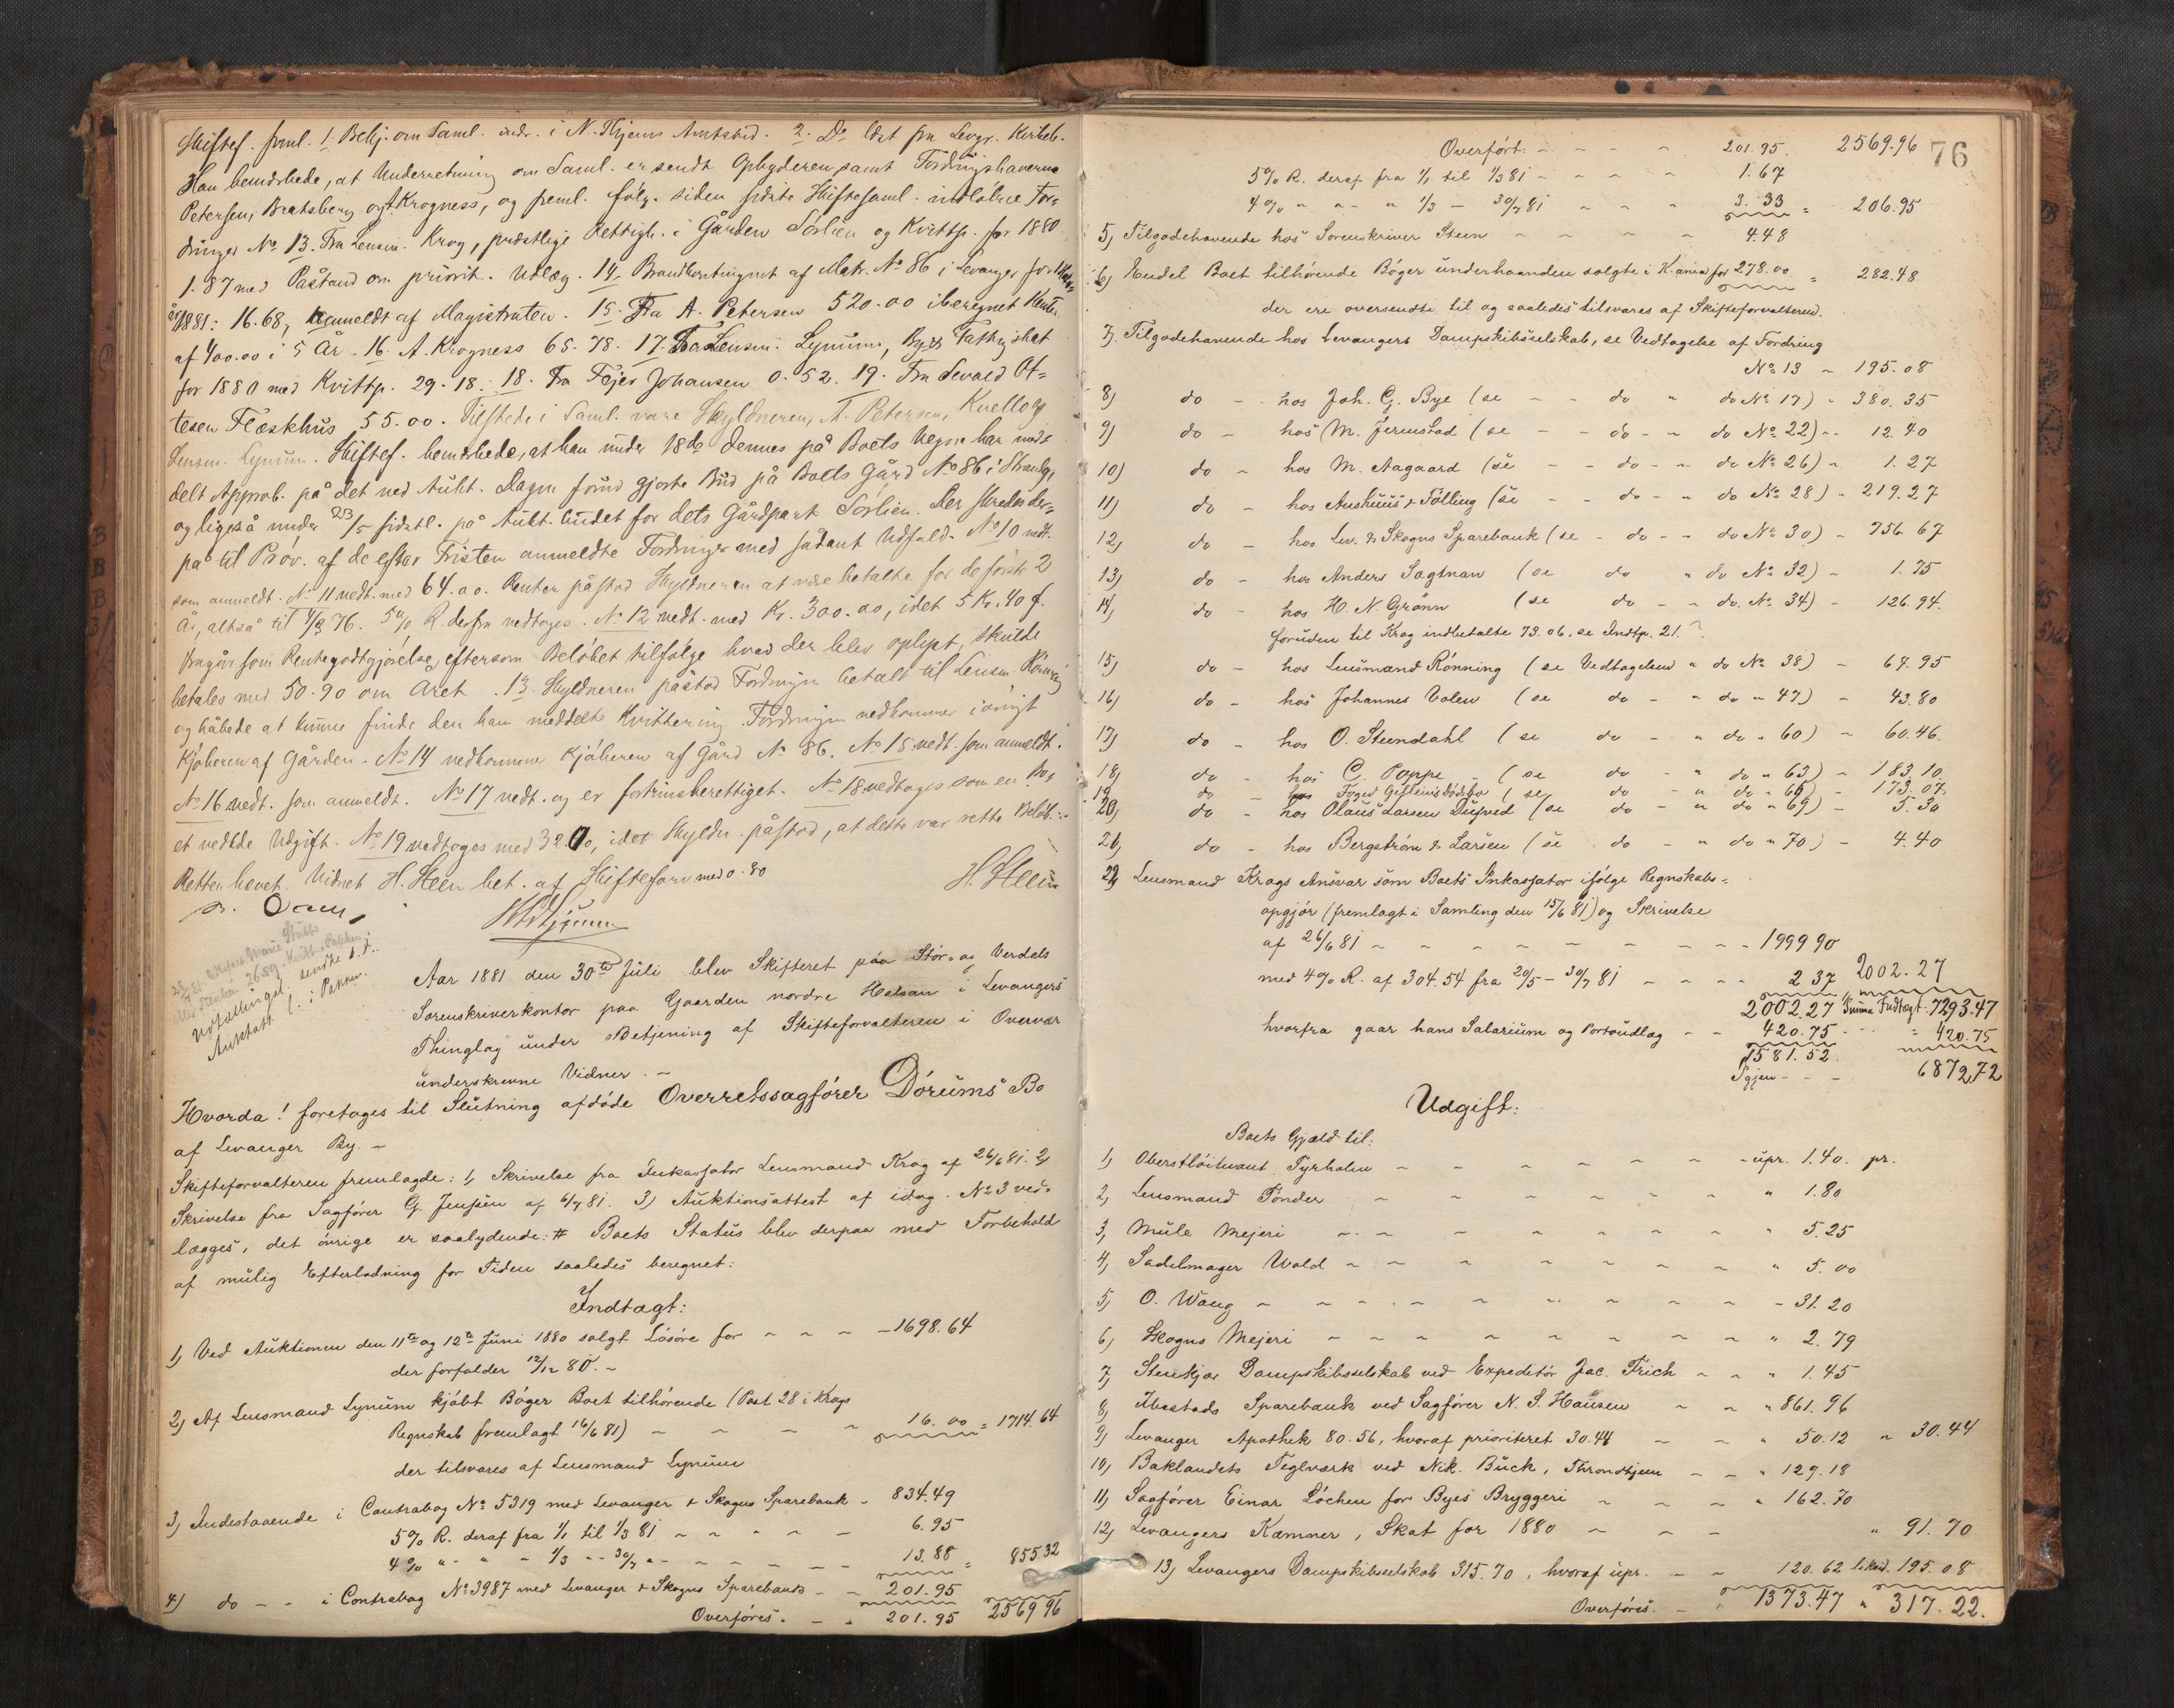 Skiftef. freml. 1. Bekj. om Saml. indr. i N. Thjems Amtstid. 2. Do læst fra Levgr. Kirkeb.
Han bemærkede, at Underretning om Saml. er sendt Opbyderen samt Fordringshaverne
Petersen, Bratsberg og A. Krogness, og freml. følg. siden sidste Skiftesaml. indløbne For-
dringer No 13. Fra Lensm. Krog, præstlige Rettigh. i Gården Sørlien og Kvittp. for 1880
1.87 med Påstand om priorit. Udlæg. 14. Brandkontingent af Matr. No 86 i Levanger for
1881: 16.68, anmeldt af Magistraten. 15. Fra A. Petersen 520.00 iberegnet Rent.
af 400.00 i 5 År. 16. A. Krogness 65.78. 17. Fra Lensm. Lynum, By- & Fattigskat
for 1880 med Kvittp. 29.18. 18. Fra Fejer Johansen 0.52. 19. Fra Sevald Ot-
tesen Flæskhus 55.00. Tilstede i Saml. vare Skyldneren, A. Petersen, Kuelle og
Lensm. Lynum. Skiftef. bemærkede, at han under 18de dennes på Boets Vegne har med-
delt Approb. på det ved Aukt. Dagen forud gjorte Bud på Boets Gård No 86 i Strandg,
og ligeså under 23/5 sidstl. på Aukt. budet for dets Gårdpart Sørlien. Der skredes der-
på til Prøv. af de efter Fristen anmeldte Fordringer med sådant Udfald. No 10 vedt.
som anmeldt. No 11 vedt. med 64.00. Renter påstod Skyldneren at være betalte for de første 2
År, altså til 4/9 76. 5% R. derfra vedtoges. No 12 vedt. med Kr. 300.00, idet 5 Kr. 40 ø.
fragår som Rentegodtgjørelse, eftersom Beløbet tilfølge hvad der blev oplyst, skulde
betales med 50.90 om Året. 13. Skyldneren påstod Fordringen betalt til Lensm. Rønning
og håbede at kunne finde den ham meddelte Kvittering. Fordringen vedkommer iøvrigt
Kjøberen af Gården. No 14 vedkommer Kjøberen af Gård No 86. No 15 vedt. som anmeldt.
No 16 vedt. som anmeldt. No 17 vedt. og er fortrinsberettiget. No 18 vedtoges som en Bo-
et vedkde Udgift. No 19 vedtoges med 32.00, idet Skyldn. påstod, at dette var rette Beløb.
Retten hævet. Vidnet H. Steen bet. af Skifteforv. med 0.80
H. Steen
Udtællinger sendte s. d.
Auktatt. l. i Pakken.
Aar 1881 den 30te Juli blev Skifteret paa Stör- og Verdals
Sorenskriverkontor paa Gaarden nordre Halsan i Levangers
Thinglag under Betjening af Skifteforvalteren i Overvær
underskrevne Vidner. –
Hvorda! foretoges til Slutning afdøde Overretssagfører Dørums Bo
af Levanger By. –
Skifteforvalteren fremlagde: 1, Skrivelse fra Inkassator Lensmand Krog af 26/6 81. 2,
Skrivelse fra Sagfører G. Jenssen af 6/7 81. 3) Auktionsattest af idag. No 3 ved-
lægges, det øvrige er saalydende: # Boets Status blev derpaa med Forbehold
af mulig Efterladning for Tiden saaledes beregnet:
Indtægt:
1, Ved Auktionen den 11te og 12te Juni 1880 solgt Løsøre for – – – 1698.64
der forfalder 12/12 80. –
2, Af Lensmand Lynum kjøbt Bøger Boet tilhørende (Post 28 i Krogs
Regnskab fremlagt 16/6 81) – – – 16.00 = 1714.64
der tilsvares af Lensmand Lynum
3, Indestaaende i Contrabog No 5319 med Levanger & Skogns Sparebank - 834.49
5% R. deraf fra 1/1 til 1/3 81 – – – – 6.95
4% " - " - 1/3 - - 30/7 " - – – – 13.88 = 855 32
4) do – – i Contrabog No 3987 med Levanger & Skogns Sparebank – – 201.95
Overføres. – – 201.95 2569 96
76
Overført. – – – – 201.95. 2569.96
5% R. deraf fra 1/1 til 1/3 81 – – – – 1.67
4% " " - " 1/3 – 30/7 81 – – – 3.33 = 206.95
5, Tilgodehavende hos Sorenskriver Steen – – – – 4.48
6, Endel Boet tilhørende Bøger underhaanden solgte i K.ania for 278.00 = 282.48
der ere oversendte til og saaledes tilsvares af Skifteforvalteren.
7, Tilgodehavende hos Levangers Dampskibsselskab, se Vedtagelse af Fordring
No 13 – 195.08
8) do – hos Joh. G. Bye (se – – do " do No 17) – 380.35
9) do – hos M. Jermstad (se – – do – " do No 22) – 12.40
10) do – hos M. Aagaard (se – – do – " do No 26) – 1.27
11) do – hos Aushuus & Fölling (se – – do – " do No 28) – 219.27
12, do – hos Lev. & Skogns Sparebank (se – do – – do No 30) – 756.67
13) do – hos Anders Sagtnan (se do " do No 32) – 1.75
14) do – hos H. N. Grønn (se do – " do. No 34) – 126.94.
foruden til Krog indbetalte 73.06, se Indtp. 21.
15) do – hos Lensmand Rønning (se Vedtagelsen " do No 38) – 67.95
16) do – hos Johannes Volen (se do – " do " 47) – 43.80
17) do – hos O. Steendahl (se do – " do " 60) – 60.46.
18) do – hos C. Poppe – (se do – " do " 63) – 183.10.
19 do – hos Foged Gislesens Dødsbo (se do – " do " 66) – 173.07.
20, do – hos Olaus Larsen Tufved (se do – " do " 69) – 5.30
21, do – hos Bergström & Larsen (se do – " do " 70) – 4.40
22, Lensmand Krogs Ansvar som Boets Inkassator ifølge Regnskabs-
opgjør (fremlagt i Samling den 15/6 81) og Skrivelse
af 26/6 81 – – – – – – – – – 1999 90
med 4% R. af 304.54 fra 20/5 – 30/7 81 – – – – 2 37 2002.27
2002.27 Summa Indtægt: 7293.47
hvorfra gaar hans Salarium og Portoudlæg – – 420.75 – – = 420.75
1581.52.
Igjen – – – 6872,72
Udgift:
Boets Gjæld til:
1, Oberstløitnant Tyrholm – – – – – – – upr. 1.40. pr.
2, Lensmand Tønder – – – – – – – " 1.80
3, Mule Mejeri – – – – – – – " 5.25
4, Sadelmager Wold – – – – – – – " 5.00
5, O. Waug – – – – – – – – – 31.20
6, Skogns Mejeri – – – – – – – – " 2.79
7, Stenkjær Dampskibsselskab ved Expeditør Jac. Frich – – " 1.45
8, Ibestads Sparebank ved Sagfører N. S. Hansen – – " 861.96
9, Levanger Apothek 80.56, hvoraf prioriteret 30.44 – – " 50.12 " 30.44
10, Baklandets Teglværk ved Nik. Buck, Throndhjem – – " 129.18
11, Sagfører Einar Lochen for Byes Bryggeri – – – " 162.70
12, Levangers Kæmner, Skat for 1880 – – – " 91.70
13, Levangers Dampskibsselskab 315.70, hvoraf upr. – – 120.62 likvid. 195.08
Overføres. – " 1373.47 " 317.22.